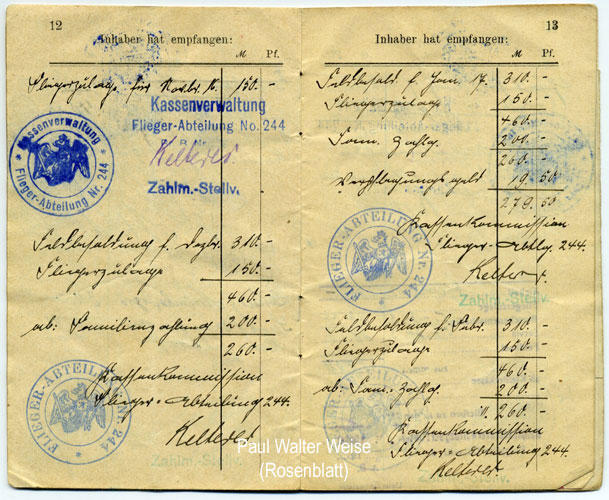 12
Inhaber hat empfangen:
M Pf.
Fliegerzulage für Novbr. 16. 150. -
Kassenverwaltung
Flieger-Abteilung No. 244
Zahlm.-Stellv.
Kassenverwaltung
* Flieger-Abteilung Nr. 244 *
Feldbesoldung f. Dezbr. 310. -
Fliegerzulage 150. -
460. -
ab: Familienzahlung 200. -
260. -
Kassenkommission
Flieger-Abteilung 244.
FLIEGER-ABTEILUNG Nr. 244
13
Inhaber hat empfangen:
M Pf.
Feldbesold. f. Jan. 17. 310. -
Fliegerzulage 150. -
460. -
Fam. Zahlg. 200. -
260. -
Verpflegungsgeld 19. 50
279. 50
Kassenkommission
Flieger-Abtlg. 244.
FLIEGER-ABTEILUNG Nr. 244
Zahlm.-Stellv.
Feldbesoldung f. Febr. 310. -
Fliegerzulage 150. -
460. -
ab: Fam. Zahlg. 200. -
260. -
Kassenkommission
Flieger-Abteilung 244.
Paul Walter Weise
(Rosenblatt)